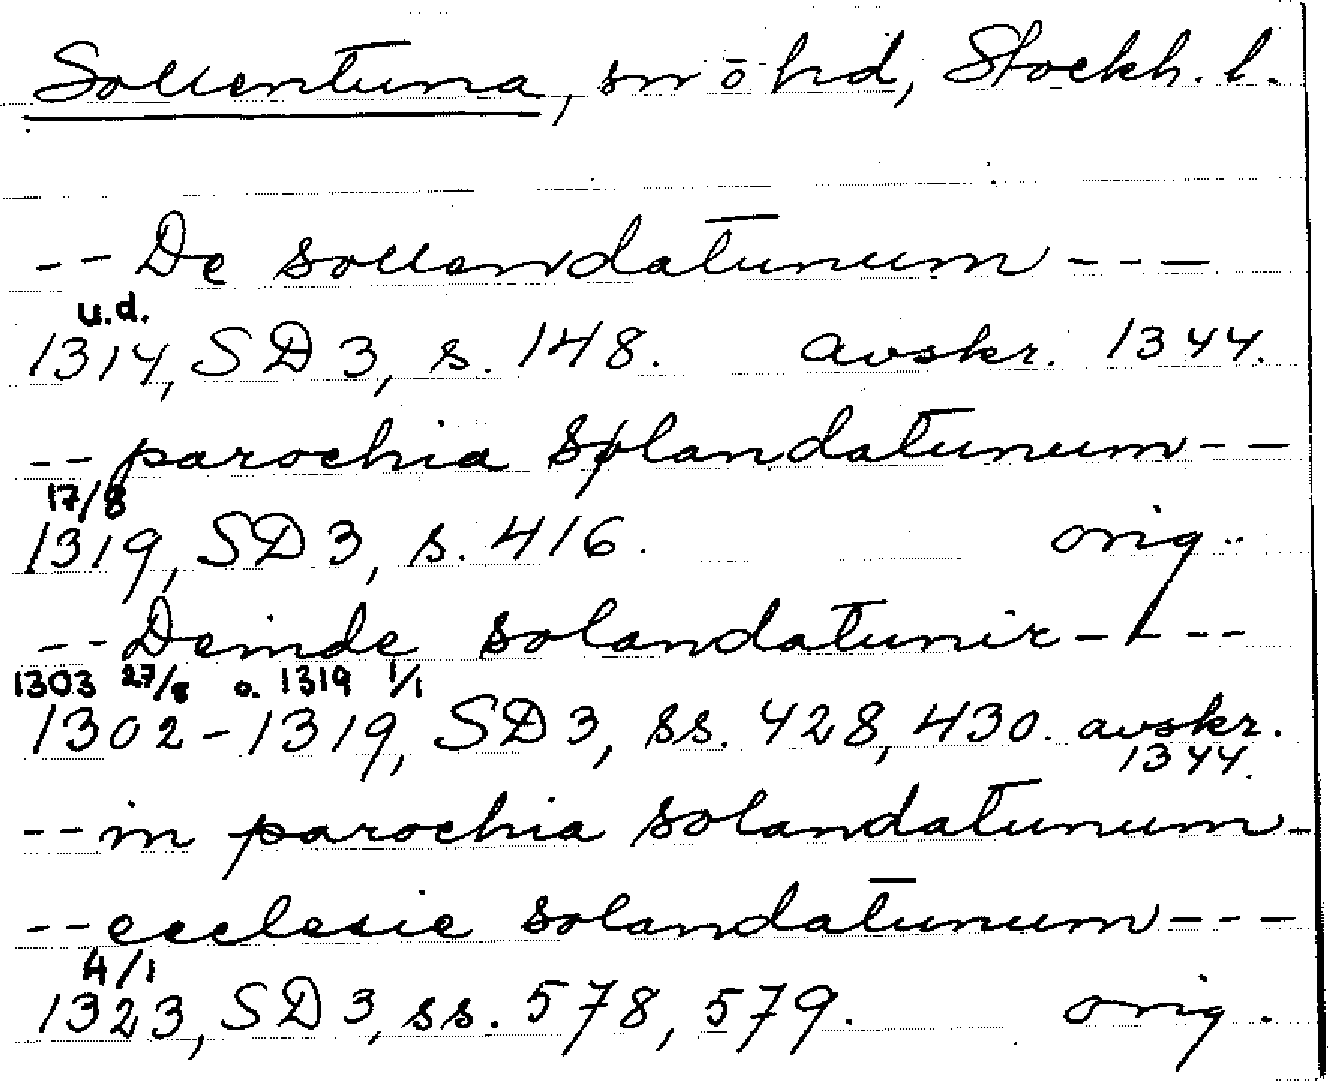 Sollentuna, sn o hd, Stockh. l.
-- De sollandatunum ---
u.d.
1314, SD 3, s. 148. avskr. 1344.
-- parochia Sølandatunum --
17/8
1319, SD 3, s. 416. orig.
-- Deinde solandatunir ----
1303 27/8 o. 1319 1/1
1302-1319, SD 3, ss. 428, 430. avskr.
1344.
-- in parochia solandatunum -
-- ecclesie solandatunum ---
4/1
1323, SD 3, ss. 578, 579. orig.